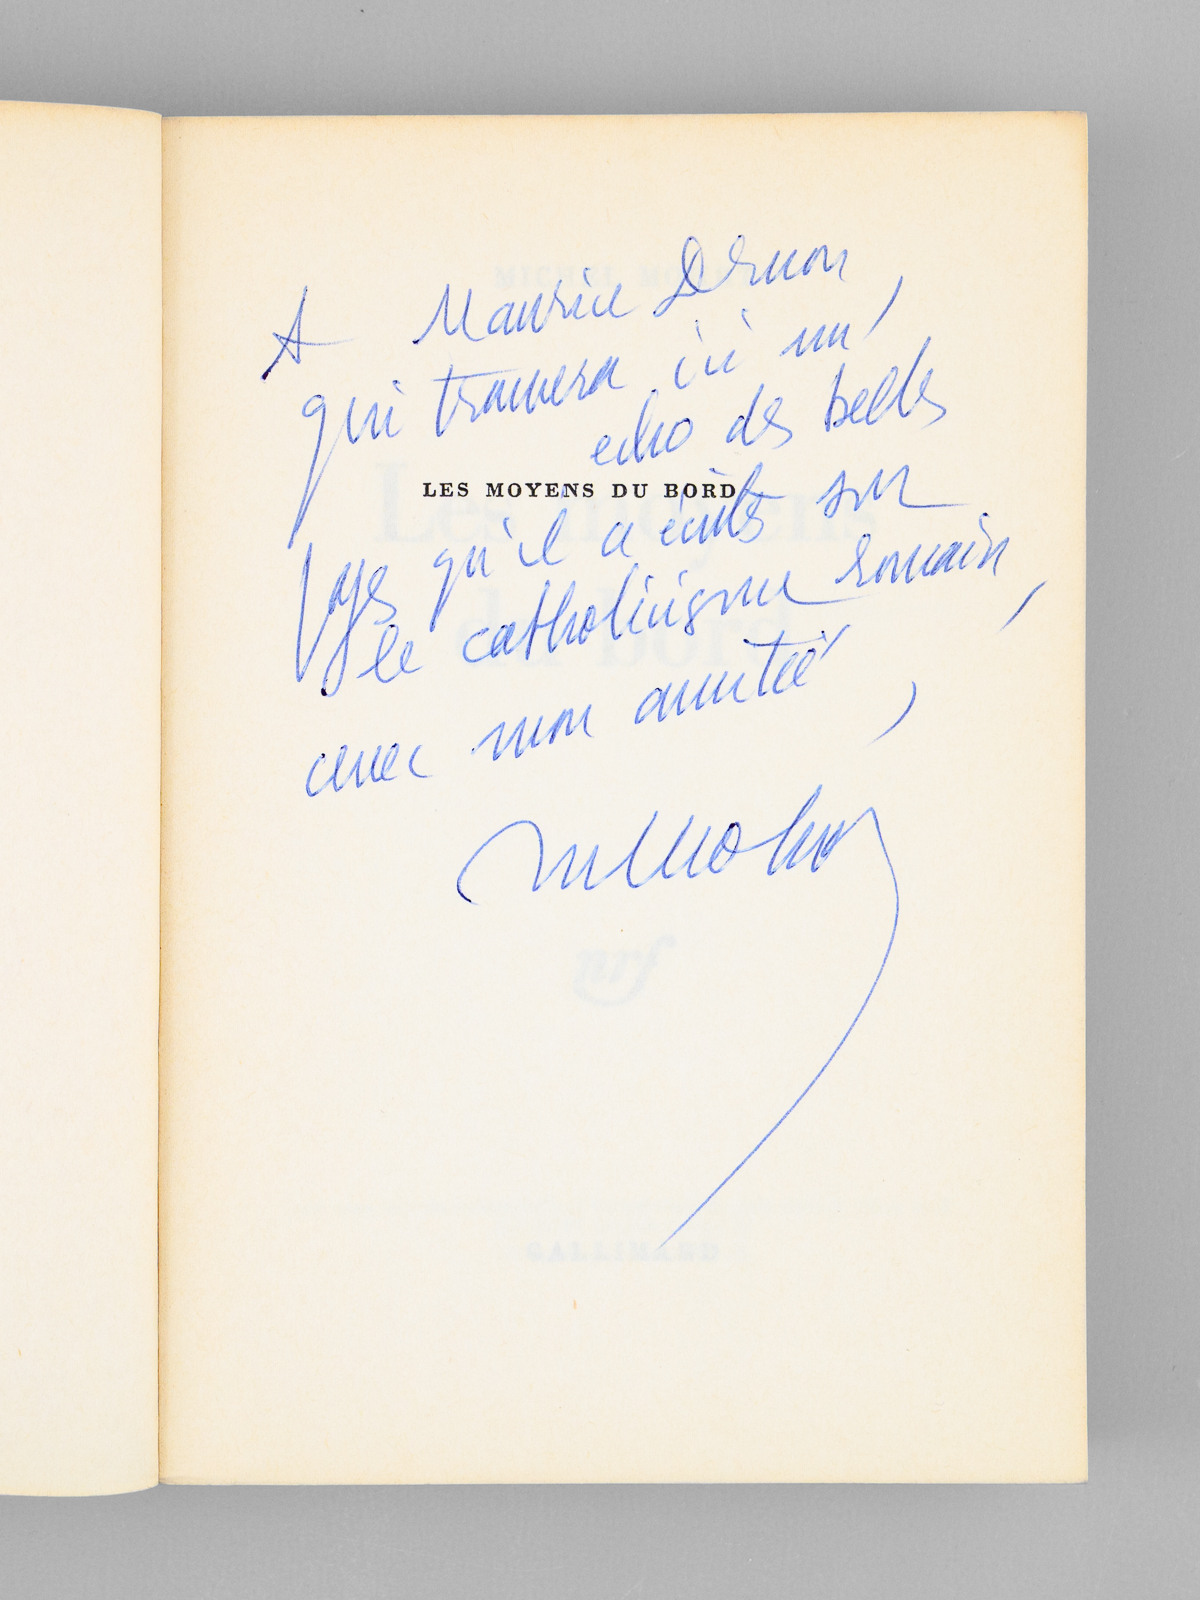 A Maurice Druon,
qui trouvera ici un
écho des belles
LES MOYENS DU BORD
pages qu'il a écrits sur
le catholicisme romain,
avec mon amitié,
MICHEL
Les moyens
du bord
nrf
GALLIMARD